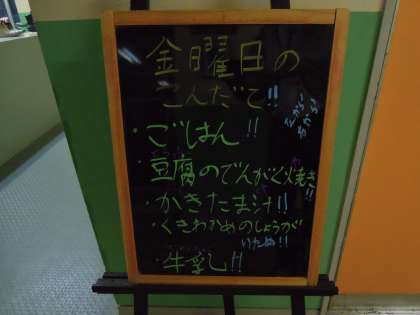 金曜日の
こんだて!!
・ごはん!!
・豆腐のでんがく焼き!!
・かきたま汁!!
・くきわかめのしょうが
いため!!
・牛乳!!